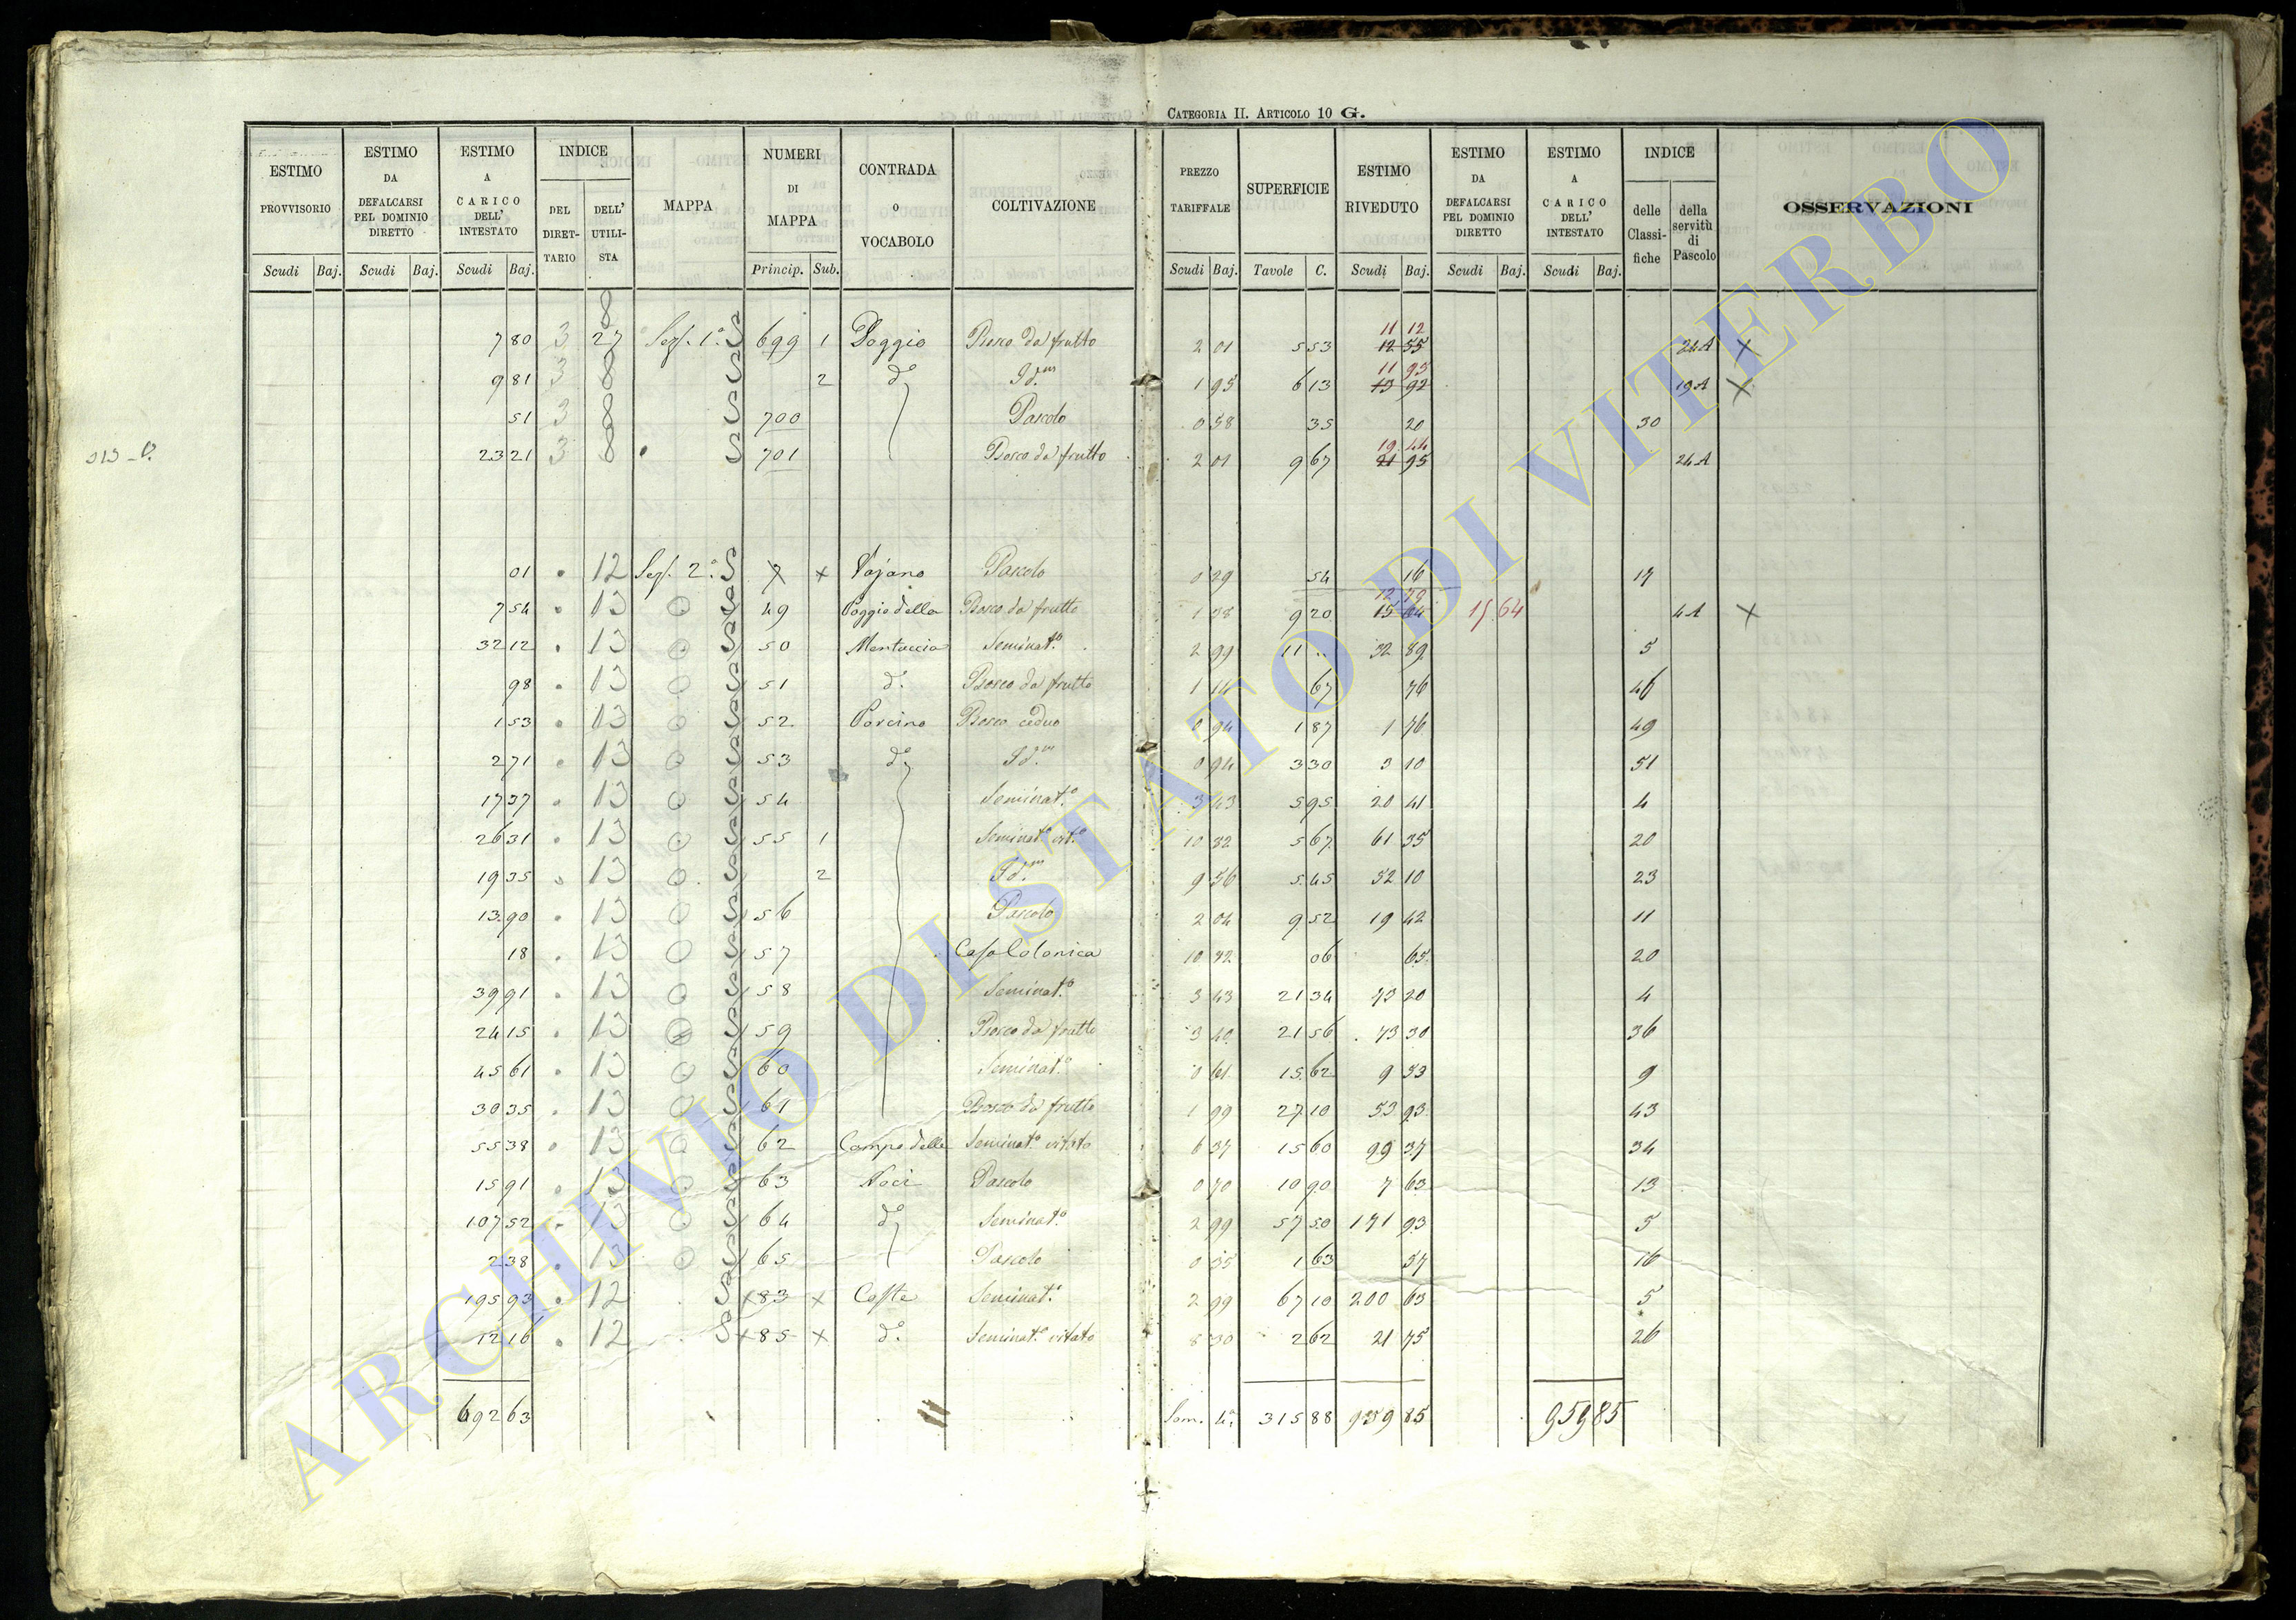 CATEGORIA II. ARTICOLO 10 G.
ESTIMO PROVVISORIO | ESTIMO DA DEFALCARSI PEL DOMINIO DIRETTO | ESTIMO A CARICO DELL' INTESTATO | INDICE | MAPPA | NUMERI DI MAPPA | CONTRADA O VOCABOLO | COLTIVAZIONE | PREZZO TARIFFALE | SUPERFICIE | ESTIMO RIVEDUTO | ESTIMO DA DEFALCARSI PEL DOMINIO DIRETTO | ESTIMO A CARICO DELL' INTESTATO | INDICE | OSSERVAZIONI
DEL DIRETTARIO | DELL' UTILISTA | delle Classifiche | della servitù di Pascolo
Scudi | Baj. | Scudi | Baj. | Scudi | Baj. | Princip. | Sub. | Scudi | Baj. | Tavole | C. | Scudi | Baj. | Scudi | Baj. | Scudi | Baj.
11 12
7 80 | 3 | 27 | Sez. 1ª | 699 | 1 | Poggio | Bosco da frutto | 2 01 | 5 53 | 12 55 | 24A | X
11 95
9 81 | 3 | 2 | dº | Idm | 1 95 | 6 13 | 13 92 | 19A | X
51 | 3 | 700 | Pascolo | 0 58 | 35 | 20 | 30
19 44
23 21 | 3 | 701 | Bosco da frutto | 2 01 | 9 67 | 21 95 | 24A
01 | 12 | Sez. 2ª | 7 | x | Vajano | Pascolo | 0 29 | 54 | 16 | 17
12 79
7 54 | 13 | 49 | Poggio della | Bosco da frutto | 1 38 | 9 20 | 15 64 | 15 64 | 4A | X
32 12 | 13 | 50 | Mentuccia | Seminatº | 2 99 | 11 .. | 32 89 | 5
98 | 13 | 51 | dº | Bosco da frutto | 1 14 | 67 | 76 | 46
1 53 | 13 | 52 | Porcino | Bosco ceduo | 0 94 | 1 87 | 1 76 | 49
2 71 | 13 | 53 | dº | Idm | 0 94 | 3 30 | 3 10 | 51
17 37 | 13 | 54 | Seminatº | 3 43 | 5 95 | 20 41 | 4
26 31 | 13 | 55 | 1 | Seminatº vitº | 10 82 | 5 67 | 61 35 | 20
19 35 | 13 | 2 | Idm | 9 56 | 5 45 | 52 10 | 23
13 90 | 13 | 56 | Pascolo | 2 04 | 9 52 | 19 42 | 11
18 | 13 | 57 | Casa Colonica | 10 82 | 06 | 65 | 20
39 91 | 13 | 58 | Seminatº | 3 43 | 21 34 | 73 20 | 4
24 15 | 13 | 59 | Bosco da frutto | 3 40 | 21 56 | 73 30 | 36
45 61 | 13 | 60 | Seminatº | 0 61 | 15 62 | 9 53 | 9
30 35 | 13 | 61 | Bosco da frutto | 1 99 | 27 10 | 53 93 | 43
55 38 | 13 | 62 | Campo delle | Seminatº vitato | 6 37 | 15 60 | 99 37 | 34
15 91 | 13 | 63 | Noci | Pascolo | 0 70 | 10 90 | 7 63 | 13
107 52 | 13 | 64 | dº | Seminatº | 2 99 | 57 50 | 171 93 | 5
2 38 | 13 | 65 | Pascolo | 0 35 | 1 63 | 57 | 16
195 93 | 12 | x 83 | x | Coste | Seminatº | 2 99 | 67 10 | 200 63 | 5
12 16 | 12 | x 85 | x | dº | Seminatº vitato | 8 30 | 2 62 | 21 75 | 26
692 63 | Som. 4ª | 315 88 | 959 85 | 959 85
ARCHIVIO DI STATO DI VITERBO